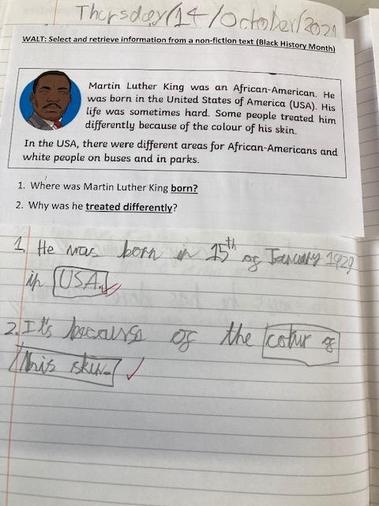 Thursday/14/October/2021
WALT: Select and retrieve information from a non-fiction text (Black History Month)
Martin Luther King was an African-American. He
was born in the United States of America (USA). His
life was sometimes hard. Some people treated him
differently because of the colour of his skin.
In the USA, there were different areas for African-Americans and
white people on buses and in parks.
1. Where was Martin Luther King born?
2. Why was he treated differently?
1. He was born in 15th of January 1929
in USA.
2. It's because of the colur of
his skin.